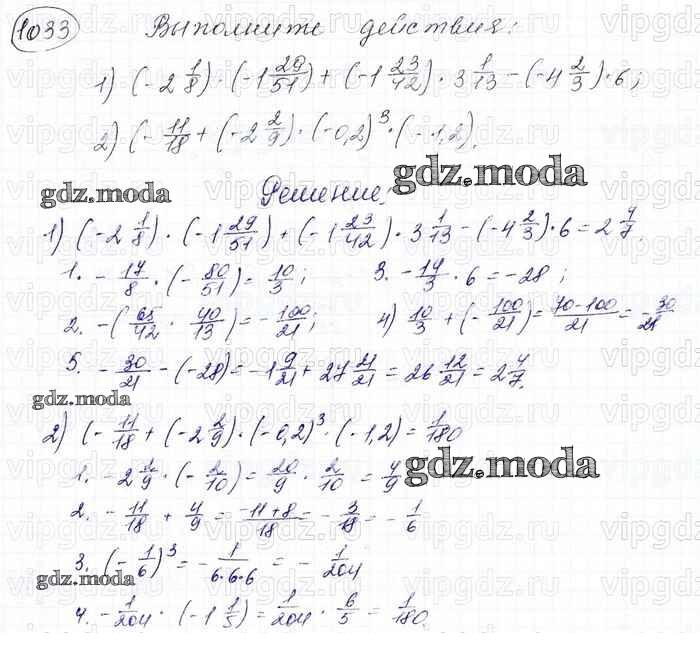 1033 Выполните действия:
1) (-2 1/8) · (-1 29/51) + (-1 23/42) · 3 1/13 - (-4 2/3) · 6;
2) (- 11/18 + (-2 2/9) · (-0,2)^3 · (-1,2).
gdz.moda Решение: gdz.moda
1) (-2 1/8) · (-1 29/51) + (-1 23/42) · 3 1/13 - (-4 2/3) · 6 = 2 4/7.
1. - 17/8 · (- 80/51) = 10/3; 3. - 14/3 · 6 = -28;
2. -( 65/42 · 40/13) = - 100/21; 4) 10/3 + (- 100/21) = 70-100/21 = - 30/21
5. - 30/21 - (-28) = -1 9/21 + 27 21/21 = 26 12/21 = 2 4/7.
gdz.moda
2) (- 11/18 + (-2 2/9) · (-0,2)^3 · (-1,2) = 1/180
1. -2 2/9 · (- 2/10) = 20/9 · 2/10 = 4/9 gdz.moda
2. - 11/18 + 4/9 = -11+8/18 = - 3/18 = - 1/6
3. (- 1/6)^3 = - 1/6·6·6 = - 1/204
gdz.moda
4. - 1/204 · (-1 1/5) = 1/204 · 6/5 = 1/180.